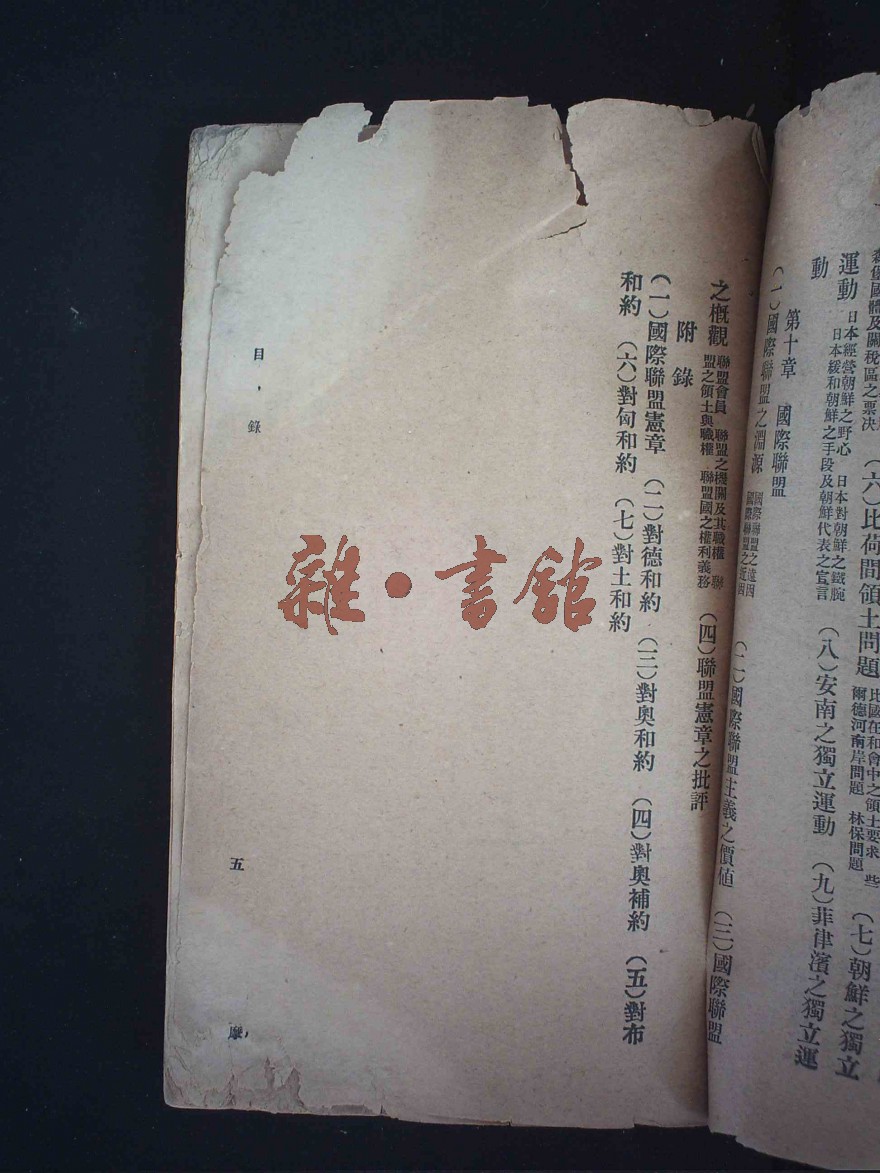 比國在和會中之領土要求
爾德河南岸問題 林保問題
(六)比荷間領土問題
(七)朝鮮之獨立
運動
日本經營朝鮮之野心 日本對朝鮮之鐵腕
日本緩和朝鮮之手段及朝鮮代表之宣言
(八)安南之獨立運動 (九)菲律濱之獨立運
動
第十章 國際聯盟
(一)國際聯盟之淵源
國際聯盟之遠因
國際聯盟之近因
(二)國際聯盟主義之價值 (三)國際聯盟
之概觀
聯盟會員 聯盟之機關及其職權 聯
盟之領土與職權 聯盟國之權利義務
(四)聯盟憲章之批評
附錄
(一)國際聯盟憲章 (二)對德和約 (三)對奧和約 (四)對奧補約 (五)對布
和約 (六)對匈和約 (七)對土和約
目錄
五
雜·書館